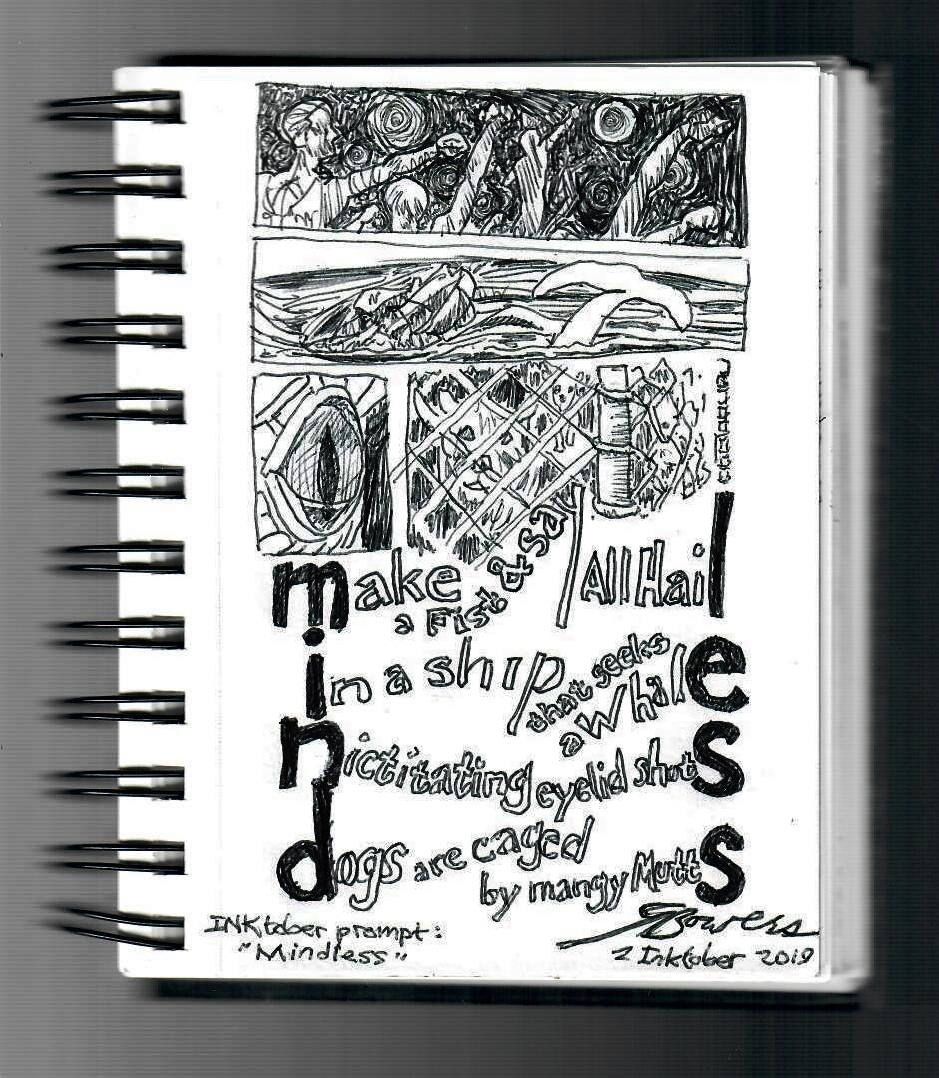 make a Fist & say All Hail
in a ship that seeks a Whale
nictitating eyelid shuts
dogs are caged by mangy Mutts
Bowers
INKtober prompt:
"Mindless"
2 Inktober 2019